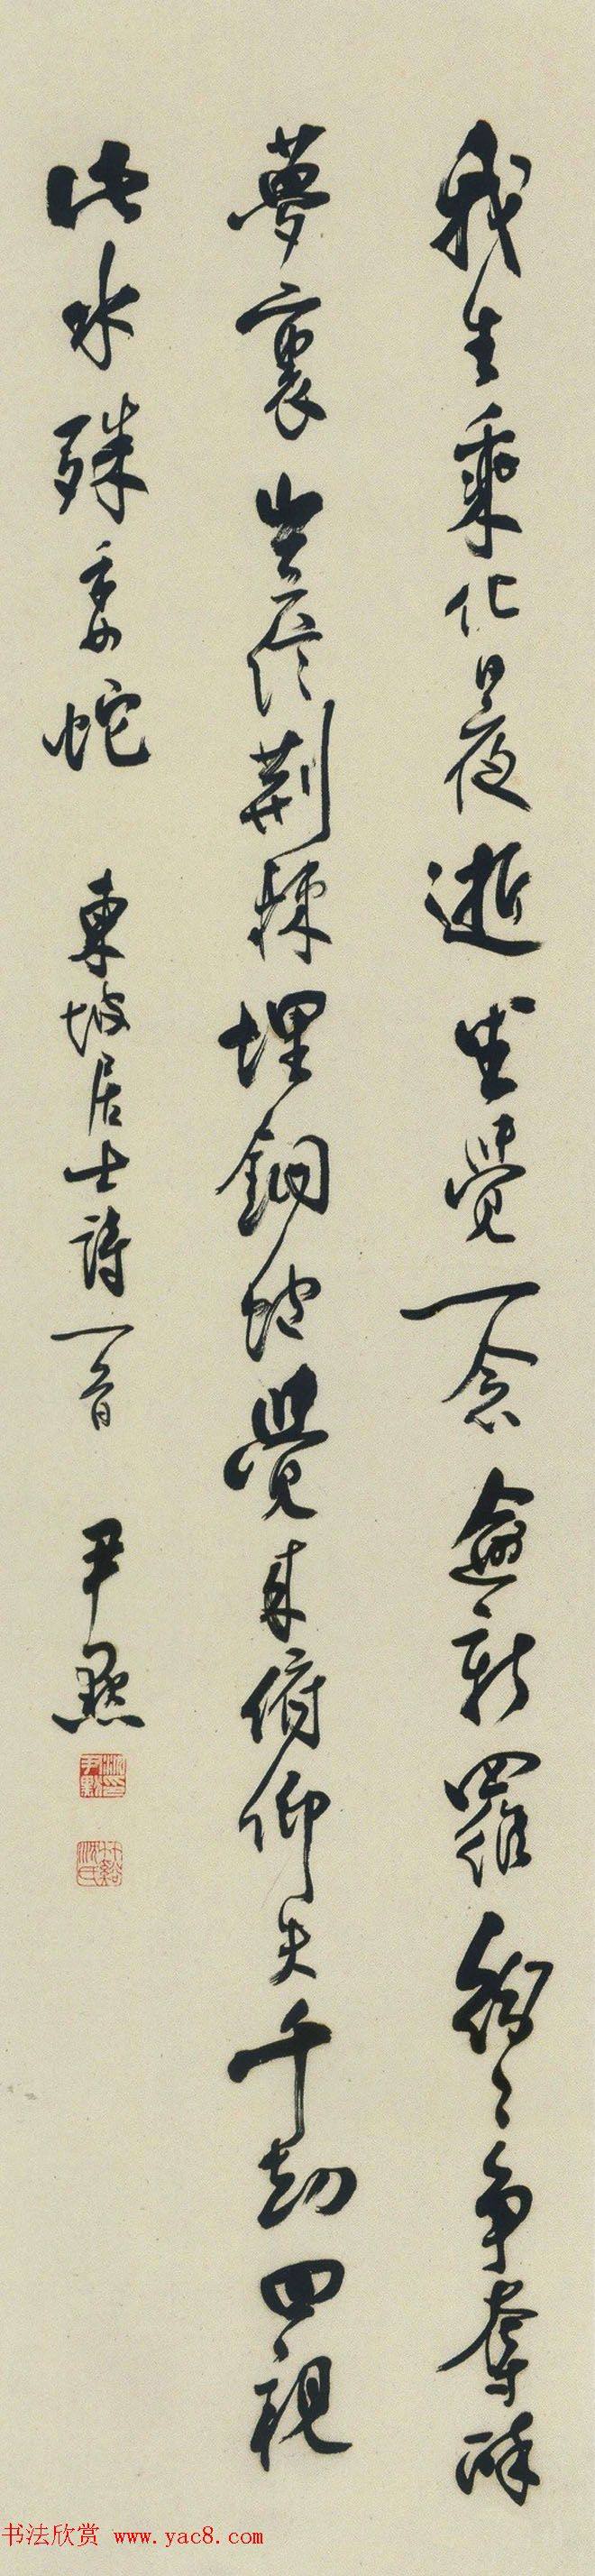 我生乘化日夜逝坐覺一念逾新羅紛々爭奪醉
夢裏豈信荊棘埋銅駝覺來俯仰失千劫回視
此水殊委蛇 東坡居士詩一首 尹默
书法欣赏 www.yac8.com